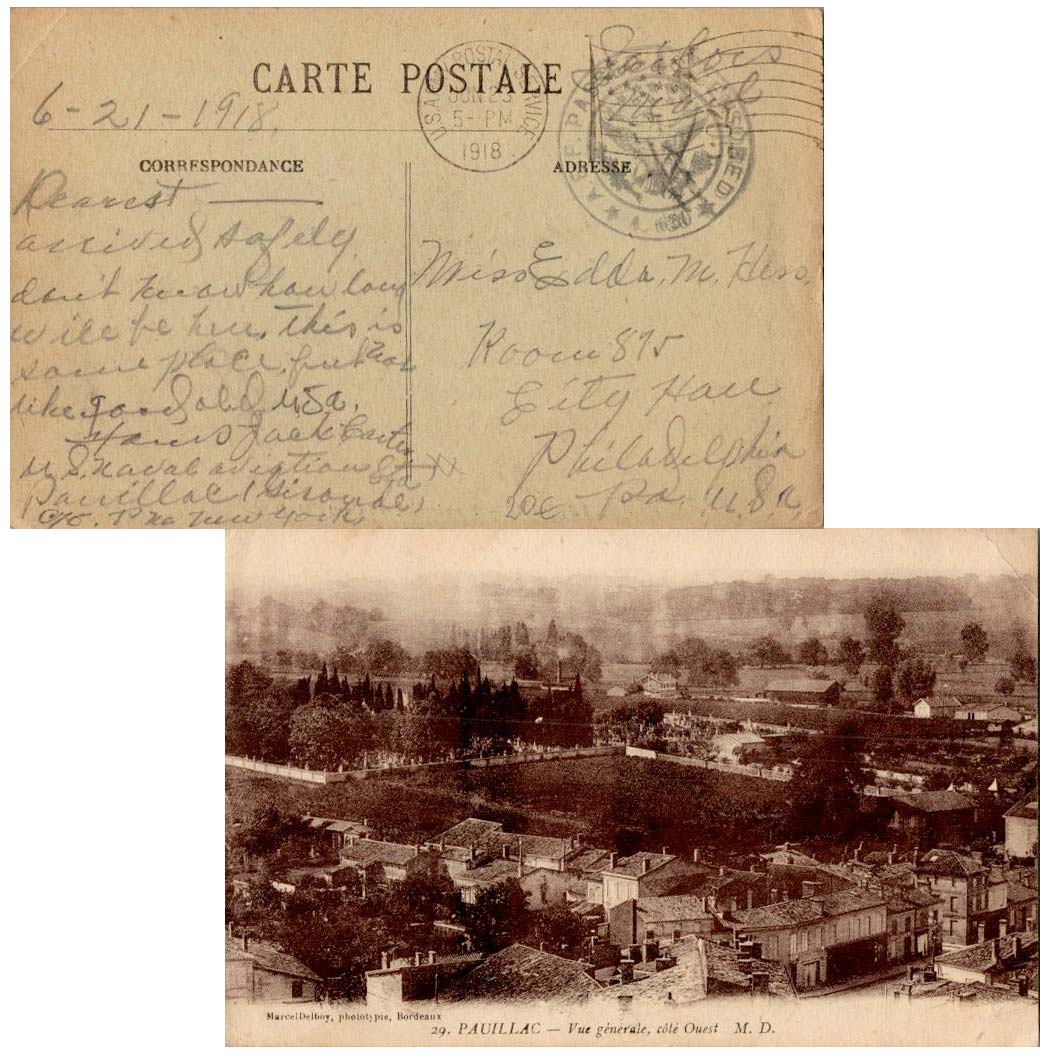 CARTE POSTALE
U.S. ARMY POSTAL SERVICE
JUN 23
5-PM
1918
Sailors
Mail
A.E.F. PASSED
6-21-1918.
CORRESPONDANCE
ADRESSE
Dearest
arrived safely
don't know how long
will be here, this is
some place, but not
like good old U.S.a.
Yours Jack
U.S. naval aviation
Pauillac (Gironde)
c/o. P.M. New York,
Miss Edda. M. Hess.
Room 875
City Hall
Philadelphia
Pa. U.S.a
20€
MarcelDelboy, phototypie, Bordeaux
29. PAUILLAC — Vue générale, côté Ouest M. D.